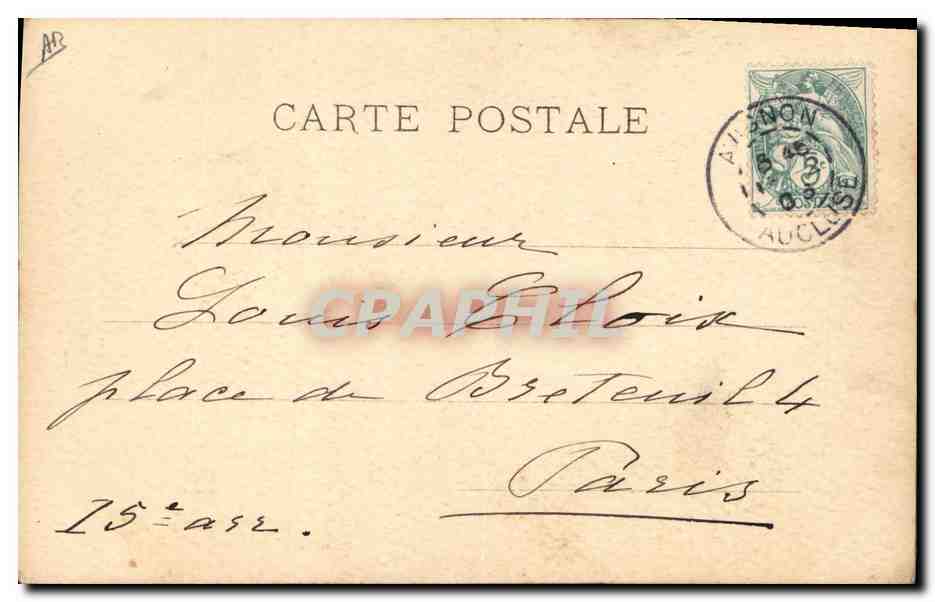 AB
CARTE POSTALE
AVIGNON
VAUCLUSE
Monsieur
Louis Cloix
place de Breteuil 4
Paris
15e arr.
CPAPHIL